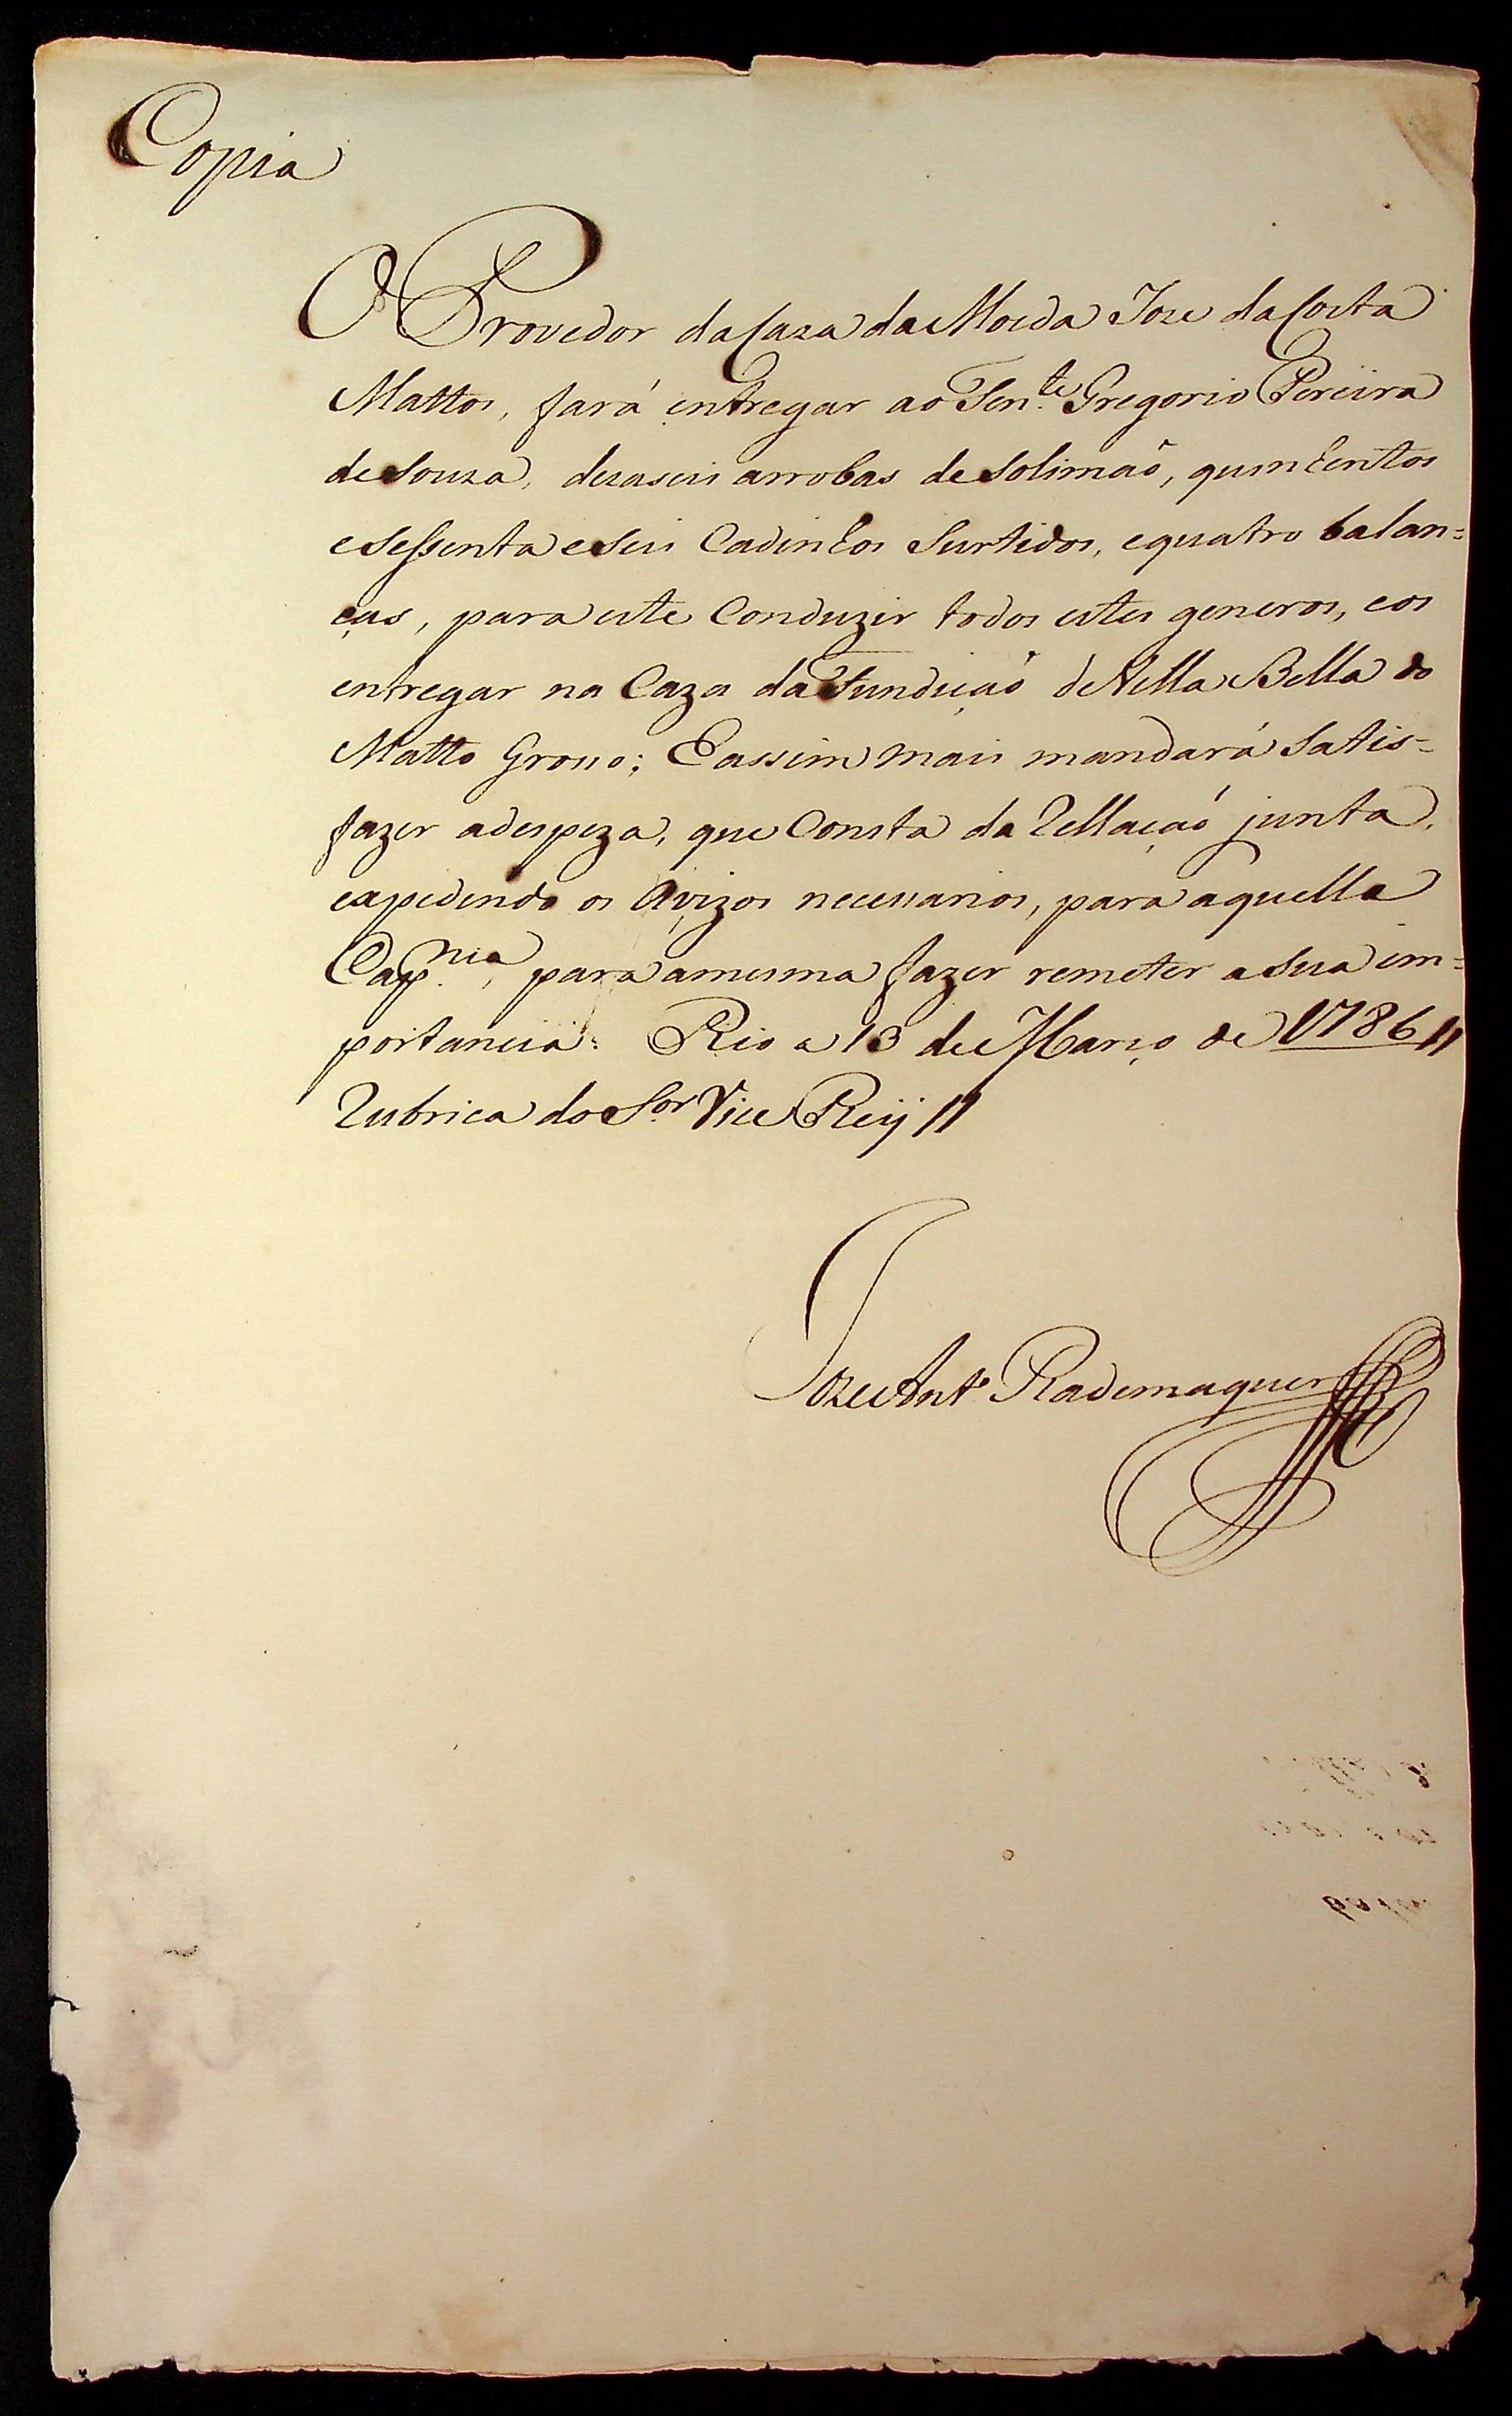 Copia
O Provedor da Caza da Moeda Joze da Costa
Mattos, fará entregar ao Ten.te Gregorio Pereira
de Souza, dezaseis arrobas de Solimaõ, quinhentos
e sessenta e seis Cadinhos Surtidos, e quatro balan=
ças, para este Conduzir todos estes generos, e os
entregar na Caza da Fundiçaõ de Villa Bella do
Matto Grosso; E assim mais mandará Satis=
fazer a despeza, que Consta da Rellaçaõ junta,
expedindo os Avizos necessarios, para aquella
Cap.nia, para a mesma fazer remeter a sua im=
portancia: Rio a 13 de Março de 1786 //
Rubrica do S.or Vice Reÿ //
Joze Ant.o Rademaquer